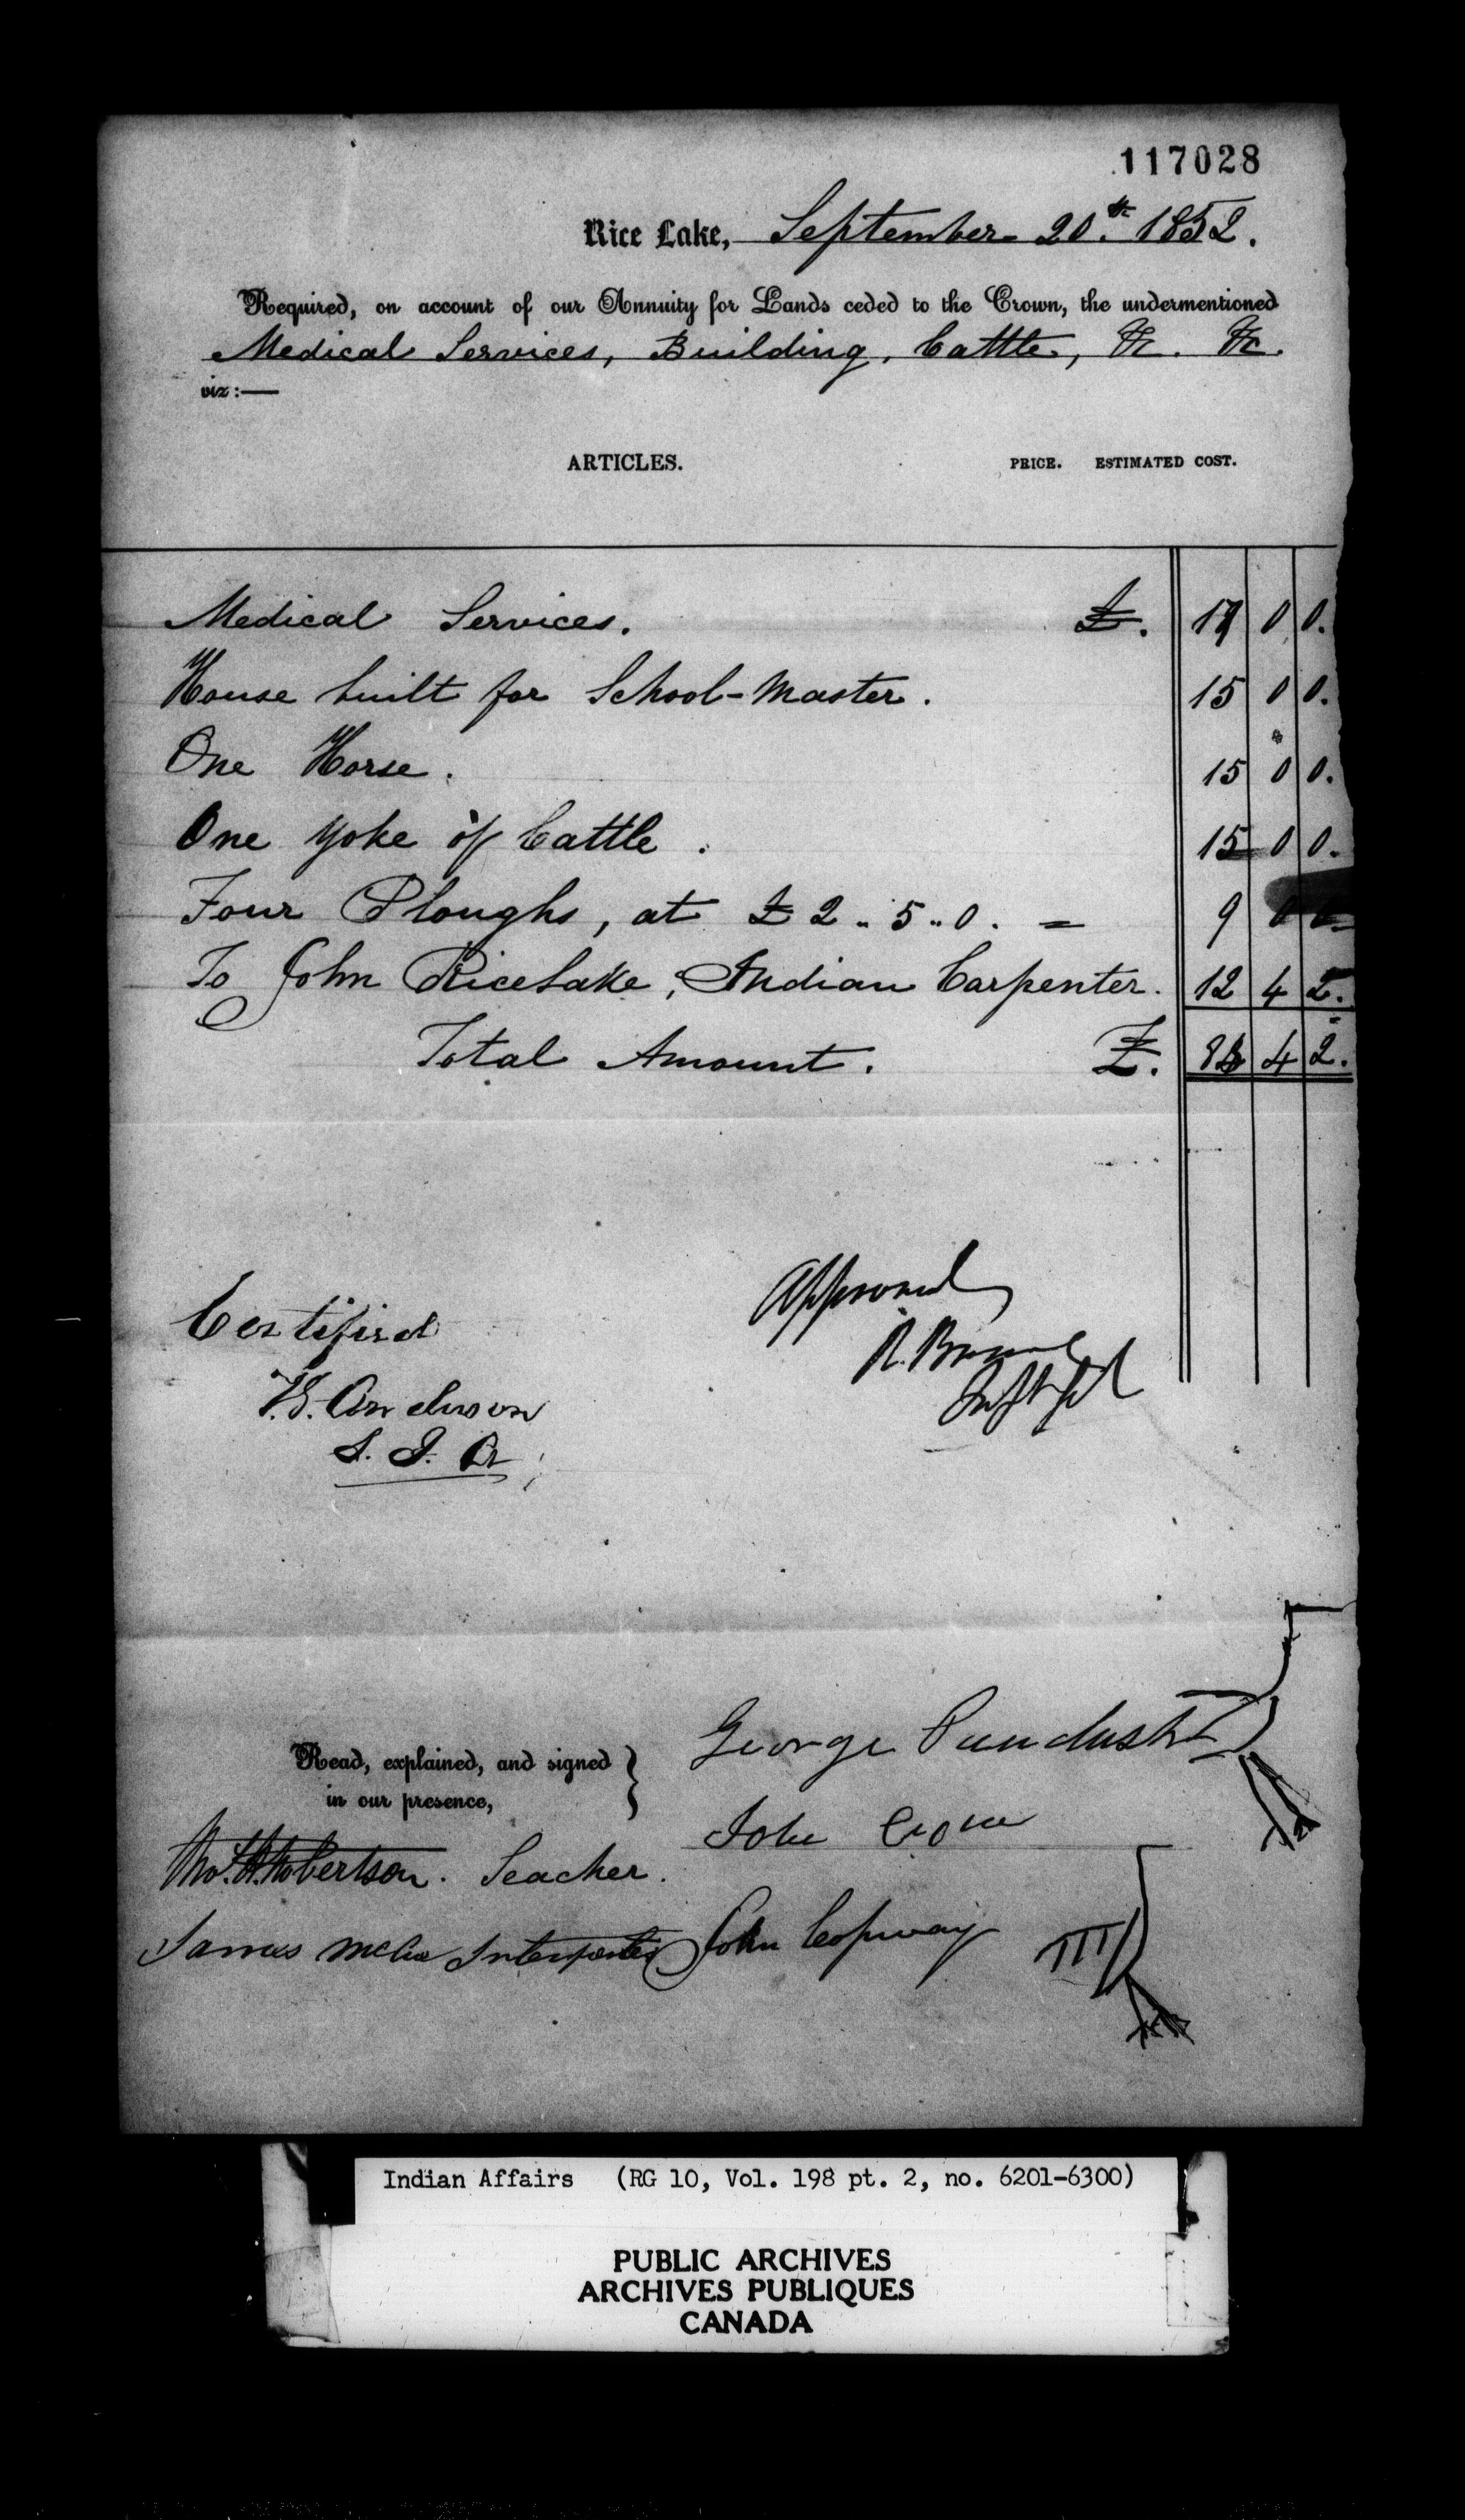 117028
Rice Lake, September 20.th 1852.
Required, on account of our Annuity for Lands ceded to the Crown, the undermentioned
Medical Services, Building, Cattle, &c. &c.
viz:—
ARTICLES. PRICE. ESTIMATED COST.
Medical Services. £. 17 0 0.
House built for School-Master. 15 0 0.
One Horse. 15 0 0.
One Yoke of Cattle. 15 0 0.
Four Ploughs, at £2..5..0. = 9 0 0
To John Rice Lake, Indian Carpenter. 12 4 2.
Total Amount. £. 83 4 2.
Certified
Approved
T.G. Anderson
R. Bruce
S. I. A
Read, explained, and signed
in our presence,
George
John Crow
Robertson. Teacher.
James Interpreter
John Copway
Indian Affairs (RG 10, Vol. 198 pt. 2, no. 6201-6300)
PUBLIC ARCHIVES
ARCHIVES PUBLIQUES
CANADA